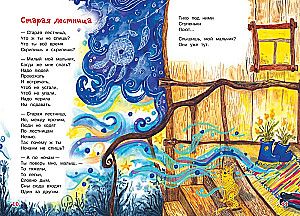 Старая лестница
— Старая лестница,
Что ж ты не спишь?
Что ты всё время
Скрипишь и скрипишь?
— Милый мой мальчик,
Когда же мне спать?
Надо людей
Провожать
И встречать,
Чтоб не устали,
Чтоб не упали,
Надо перила
Им подавать.
— Старая лестница,
Но, между прочим,
Люди не ходят
По лестницам
Ночью.
Так почему ж ты
Ночами не спишь?
— А по ночам —
Ты поверь мне, малыш, —
То тяжелы,
То легки,
Словно дым,
Сны людя входят
Один за другим
Тихо под ними
Ступеньки
Поют...
Слышишь, мой мальчик?
Они уже тут.